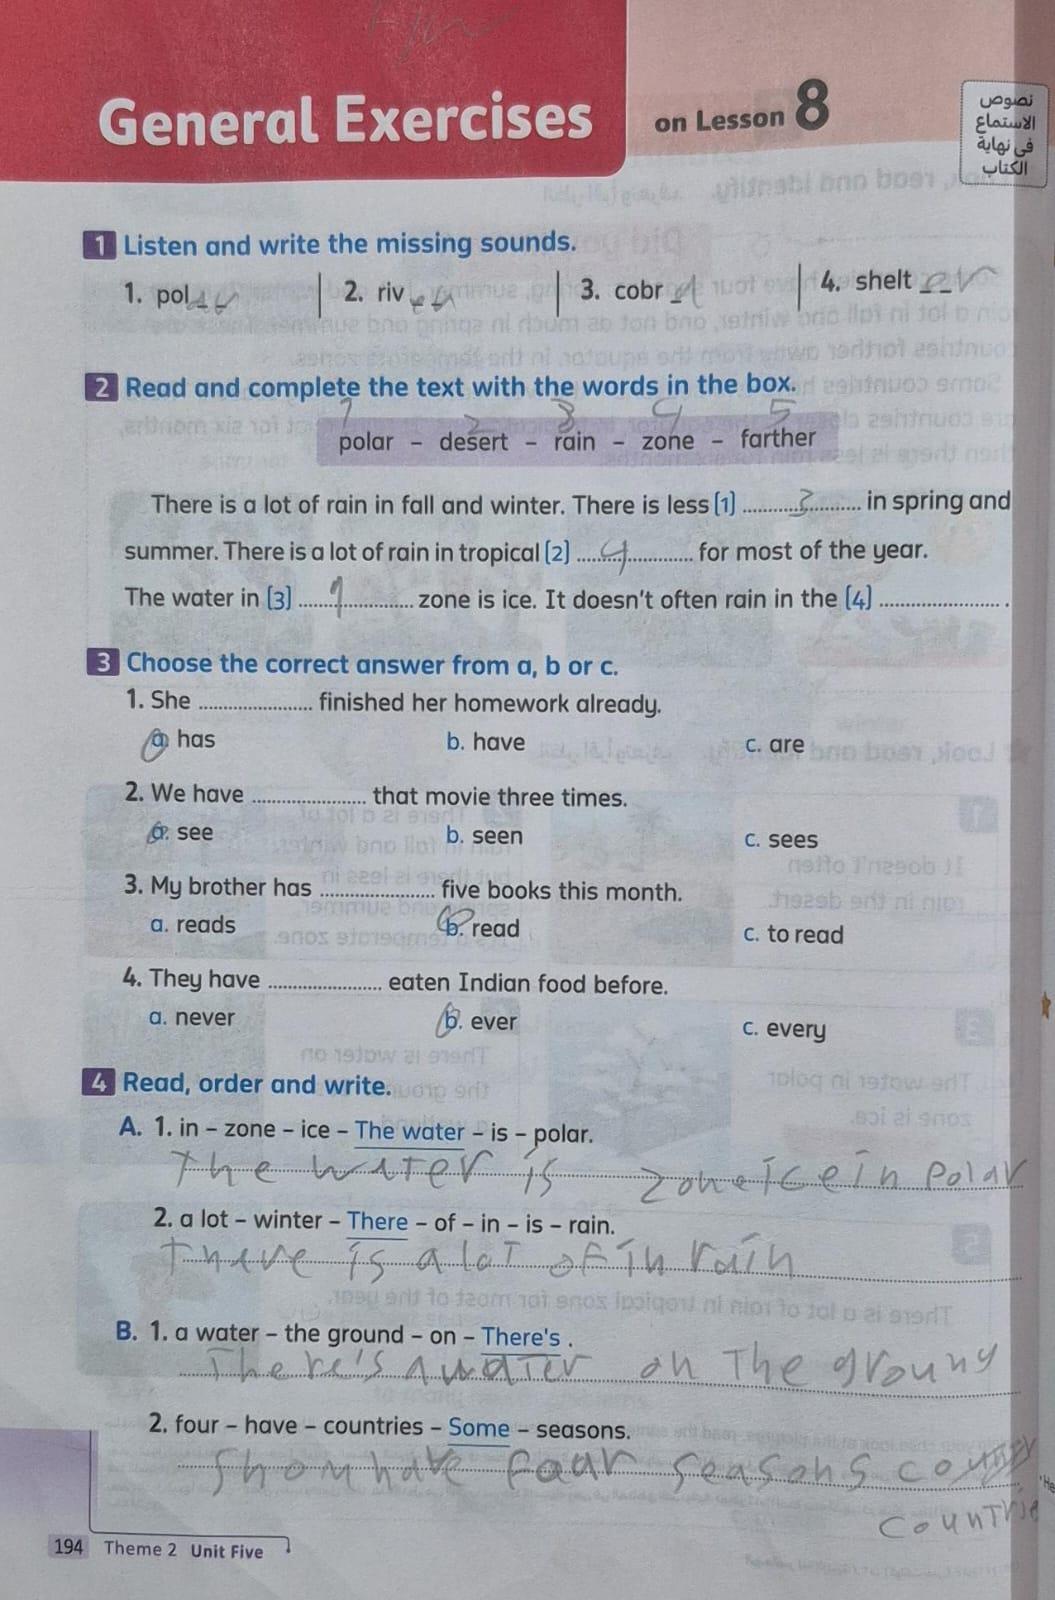 General Exercises on Lesson 8
نصوص
الاستماع
فى نهاية
الكتاب
1 Listen and write the missing sounds.
1. pol ar | 2. riv er | 3. cobr a | 4. shelt er
2 Read and complete the text with the words in the box.
1 2 3 4 5
polar – desert – rain – zone – farther
There is a lot of rain in fall and winter. There is less (1) ...........3........... in spring and
summer. There is a lot of rain in tropical (2) ......4............ for most of the year.
The water in (3) .......1............. zone is ice. It doesn't often rain in the (4) ........................ .
3 Choose the correct answer from a, b or c.
1. She ...................... finished her homework already.
a. has b. have c. are
2. We have ...................... that movie three times.
a. see b. seen c. sees
3. My brother has ...................... five books this month.
a. reads b. read c. to read
4. They have ...................... eaten Indian food before.
a. never b. ever c. every
4 Read, order and write.
A. 1. in – zone – ice – The water – is – polar.
The water is zone ice in Polar
2. a lot – winter – There – of – in – is – rain.
There is a lot of in rain
B. 1. a water – the ground – on – There's .
There's a water on The grouny
2. four – have – countries – Some – seasons.
Shom have foar seasons
countrie
194 Theme 2 Unit Five